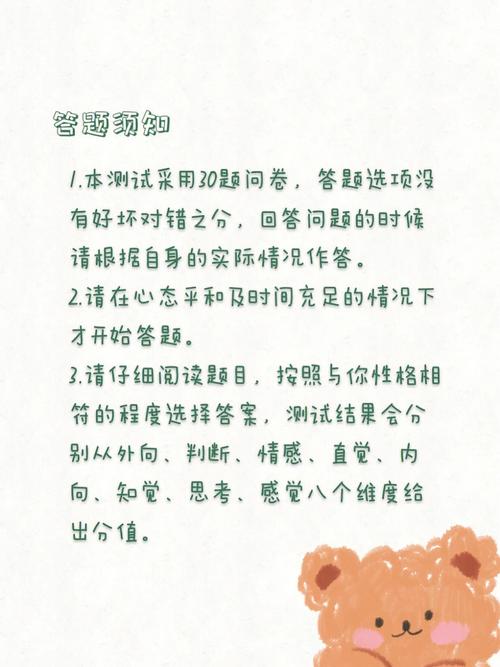 答题须知
1.本测试采用30题问卷，答题选项没
有好坏对错之分，回答问题的时候
请根据自身的实际情况作答。
2.请在心态平和及时间充足的情况下
才开始答题。
3.请仔细阅读题目，按照与你性格相
符的程度选择答案，测试结果会分
别从外向、判断、情感、直觉、内
向、知觉、思考、感觉八个维度给
出分值。